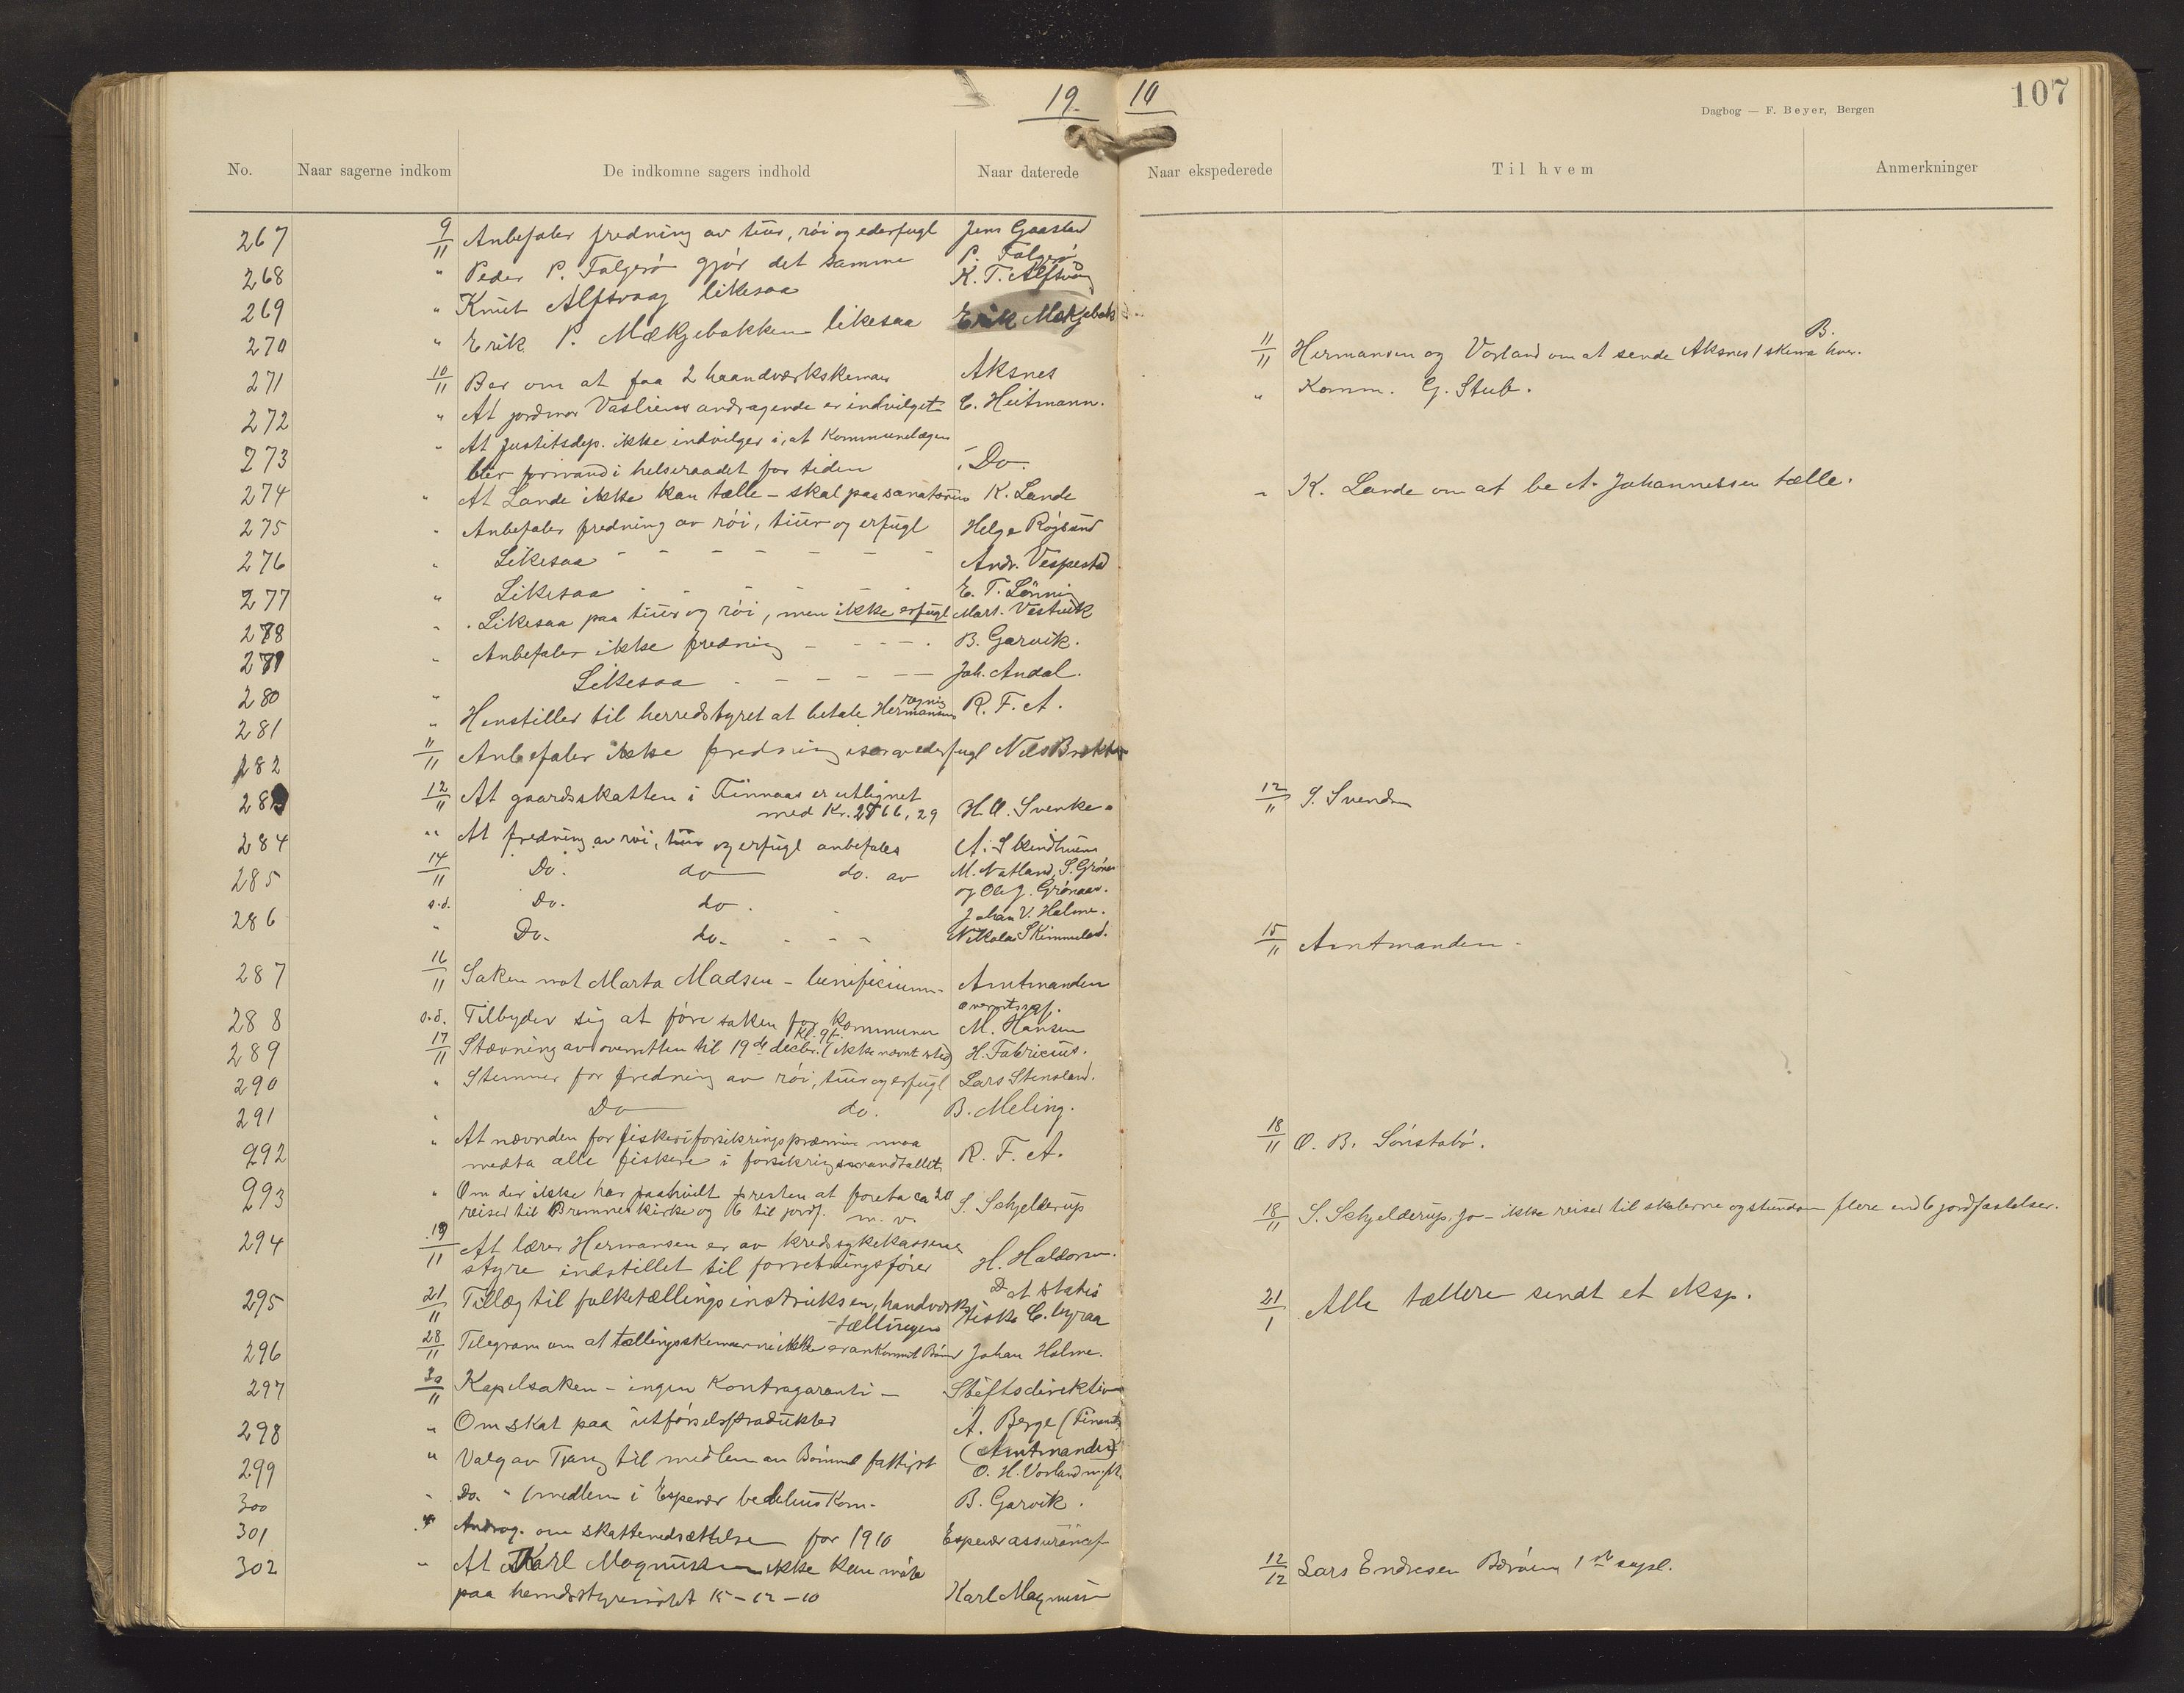 19. 10
107
Dagbog — F. Beyer, Bergen
No. Naar sagerne indkom De indkomne sagers indhold Naar daterede Naar ekspederede Til hvem Anmerkninger
267 9/11 Anbefaler fredning av tiur, röi og ederfugl Jens Gaasland
268 " Peder P. Folgerö gjör det samme P. Folgerö
269 " Knut Alfsvaag likesaa K. T. Alfsvåg
270 " Erik P. Mækjebakken likesaa Erik Mækjebak
271 10/11 Ber om at faa 2 haandverkskemaer Aksnes 11/11 Hermansen og Vorland om at sende Aksnes 1 skema hver. B.
272 " At jordmor Vasliens andragende er indvilget C. Heitmann. " Komm. G. Stub.
273 " At Justitsdep. ikke indvilger i, at Kommunelægen
blir formand i helseraadet for tiden Do.
274 " At Lande ikke kan tælle – skal paa sanatorium K. Lande " K. Lande om at be A. Johannessen tælle.
275 " Anbefaler fredning av röi, tiur og erfugl Helge Röjsund
276 " Likesaa – – – – – – Andr. Vespestad
277 " Likesaa - - - - - E. T. Lönning
278 " Likesaa paa tiur og röi, men ikke erfugl Mart. Vestvik
279 " Anbefaler ikke fredning - - - - B. Garvik.
280 " Likesaa - - - - - Joh. Andal.
281 " Henstiller til herredstyret at betale Hermansens regning R. F. A.
282 11/11 Anbefaler ikke fredning især av ederfugl Nils
283 12/11 At gaardsskatten i Finnaas er utlignet
med Kr. 2766,29 H. A. Svenke 12/11 S. Svendsen
284 " At fredning av röi, tiur og erfugl anbefales A.
285 14/11 Do. do do. av M. Natland, S. Grönaas
og Ole J. Grönaas.
286 s.d. Do. do. Johan V. Holme.
" Do. do. - - - Nikolai Skimmeland. 15/11 Amtmanden.
287 16/11 Saken mot Marta Madsen – benificium – Amtmanden
288 s.d. Tilbyder sig at före saken for kommunen overretssagf. M. Hansen
289 17/11 Stævning av overretten til 19de decbr. Kl. 9 fm. (ikke nævnt sted) H. Fabricius.
290 " Stemmer for fredning av röi, tiur og erfugl Lars Stensland.
291 " Do do. B. Meling.
292 " At nævnden for fiskeriforsikringspræmie maa
medta alle fiskere i forsikringsmandtallet R. F. A. 18/11 O. B. Sönstabö.
293 " Om der ikke har paahvilt presten at foreta ca 20
reiser til Bremnes kirke og 6 til jordf. m. v. S. Schjelderup 18/11 S. Schjelderup, Jo – ikke reiser til skolerne og stundom flere end 6 jordfæstelser.
294 19/11 At lærer Hermansen er av kredssykekassens
styre indstillet til forretningsförer H. Haldorsen.
295 21/11 Tillæg til folketællingsinstruksen, handverks
tællingen Det statistiske C. byraa 21/1 Alle tællere sendt et eksp.
296 28/11 Telegram om at tællingsskemaerne ikke er ankommet Johan Holme.
297 30/11 Kapelsaken – ingen Kontragaranti – Stiftsdirektion
298 " Om skat paa utförselsprodukter A. Berge (Finants
(Amtmanden)
299 " Valg av Tjong til medlem av Bömmel fattigst O. H. Vorland m.fl.
300 " Do. " (medlem i Espevær bedehus kom. B. Garvik.
301 " Andrag. om skattenedsættelse for 1910 Espevær assuranef
302 " At Karl Magnussen ikke kan möte
paa herredsstyremötet 15-12-10 Karl Magnussen 12/12 Lars Endresen 1ste supl.